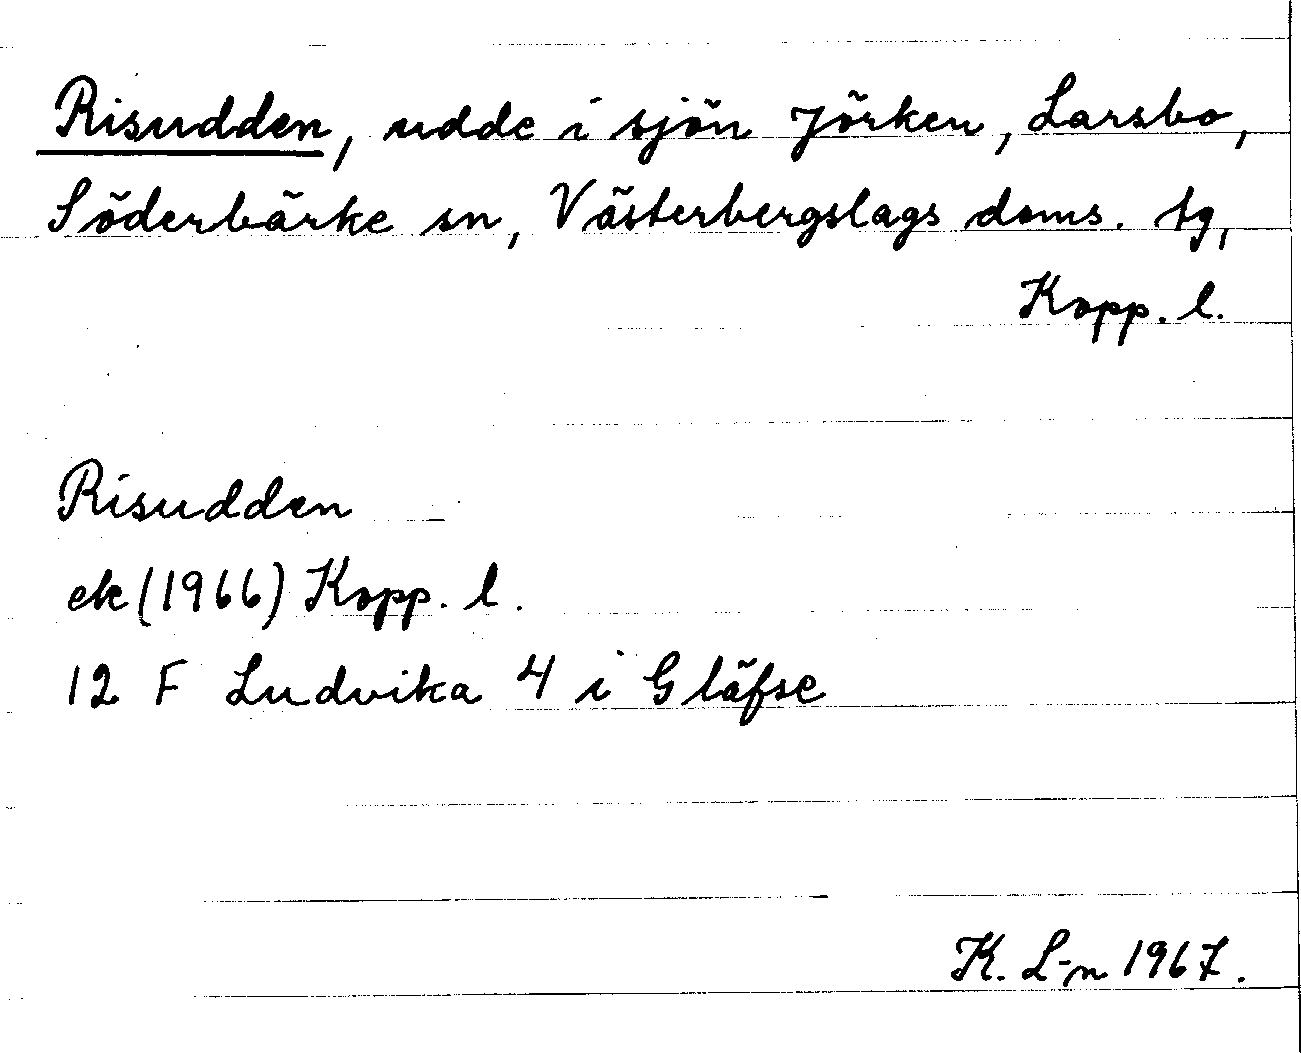 Risudden, udde i sjön Jörken, Larsbo,
Söderbärke sn, Västerbergslags doms. tg,
Kopp. l.
Risudden
ek (1966) Kopp. l.
12 F Ludvika 4 i Gläfse
K. L-n 1967.